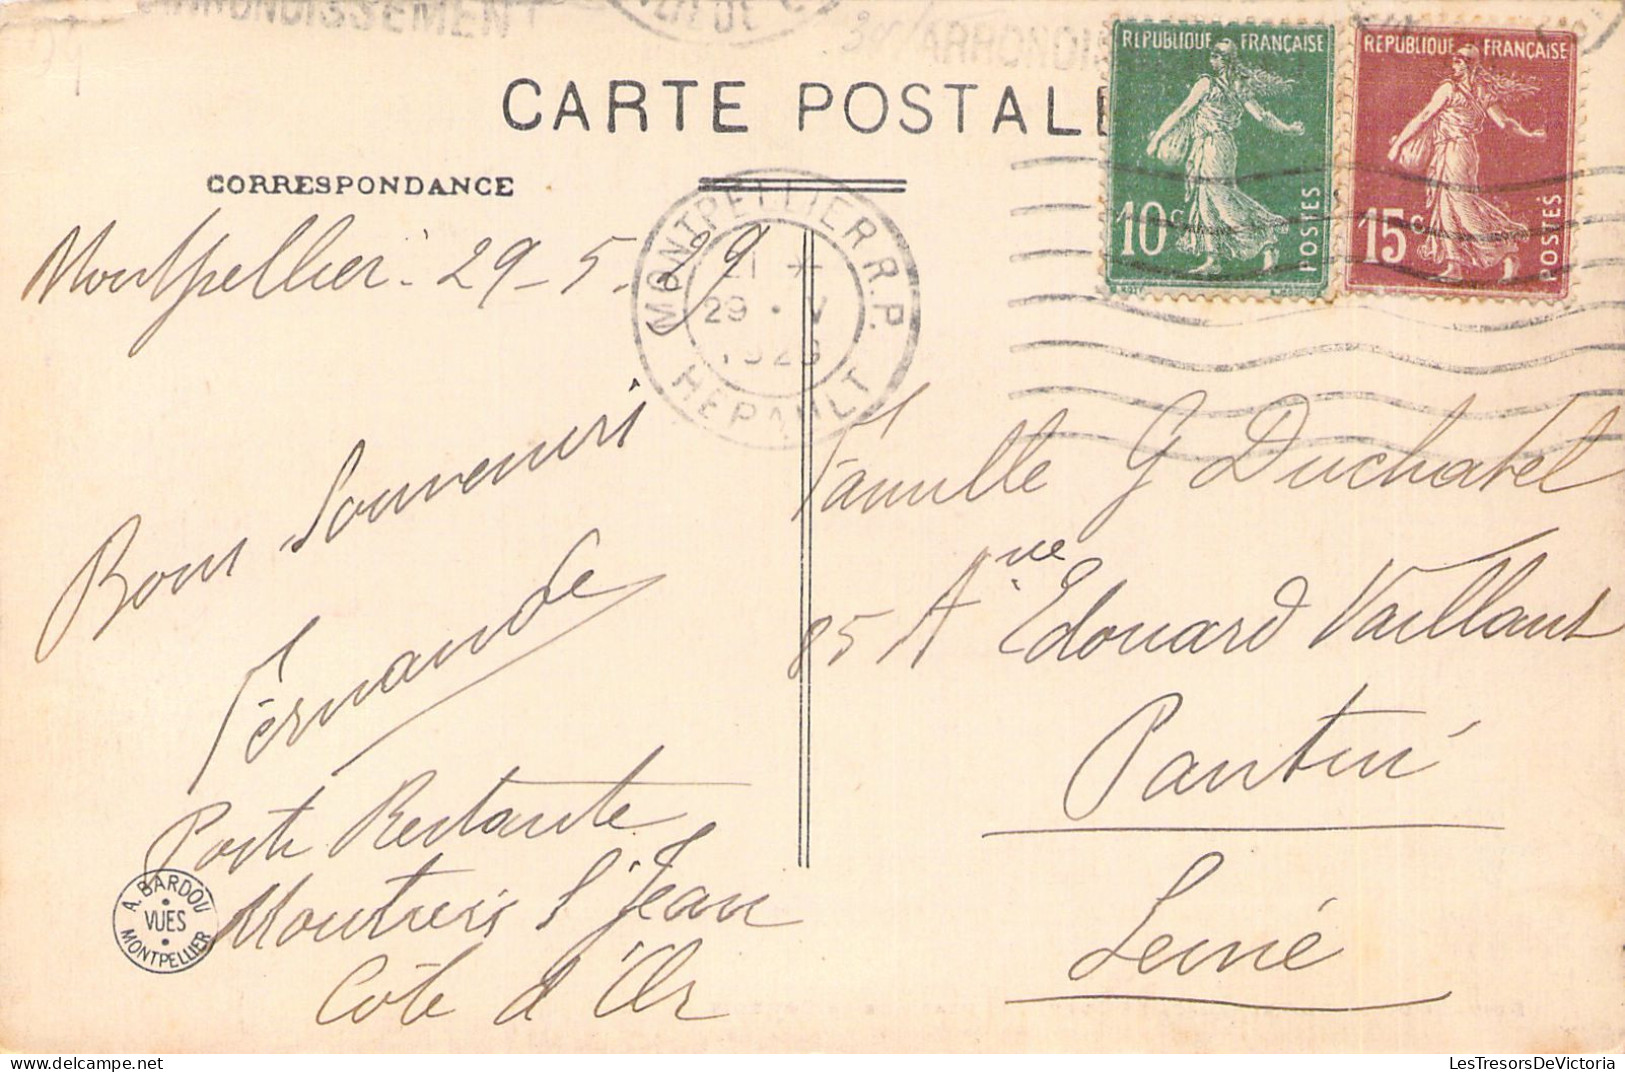 ARRONDISSEMENT
CARTE POSTALE
REPUBLIQUE FRANÇAISE
10c
POSTES
REPUBLIQUE FRANÇAISE
15c
POSTES
CORRESPONDANCE
MONTPELLIER R.P.
21 *
29 • V
1929
HERAULT
Montpellier. 29-5-29
Bons Souvenirs
Fernande
Poste Restante
St Jean
Côte d'Or
Famille G Duchatel
85 Ave Edouard Vaillant
Pantin
Seine
A. BARDOU
VUES
MONTPELLIER
LesTresorsDeVictoria